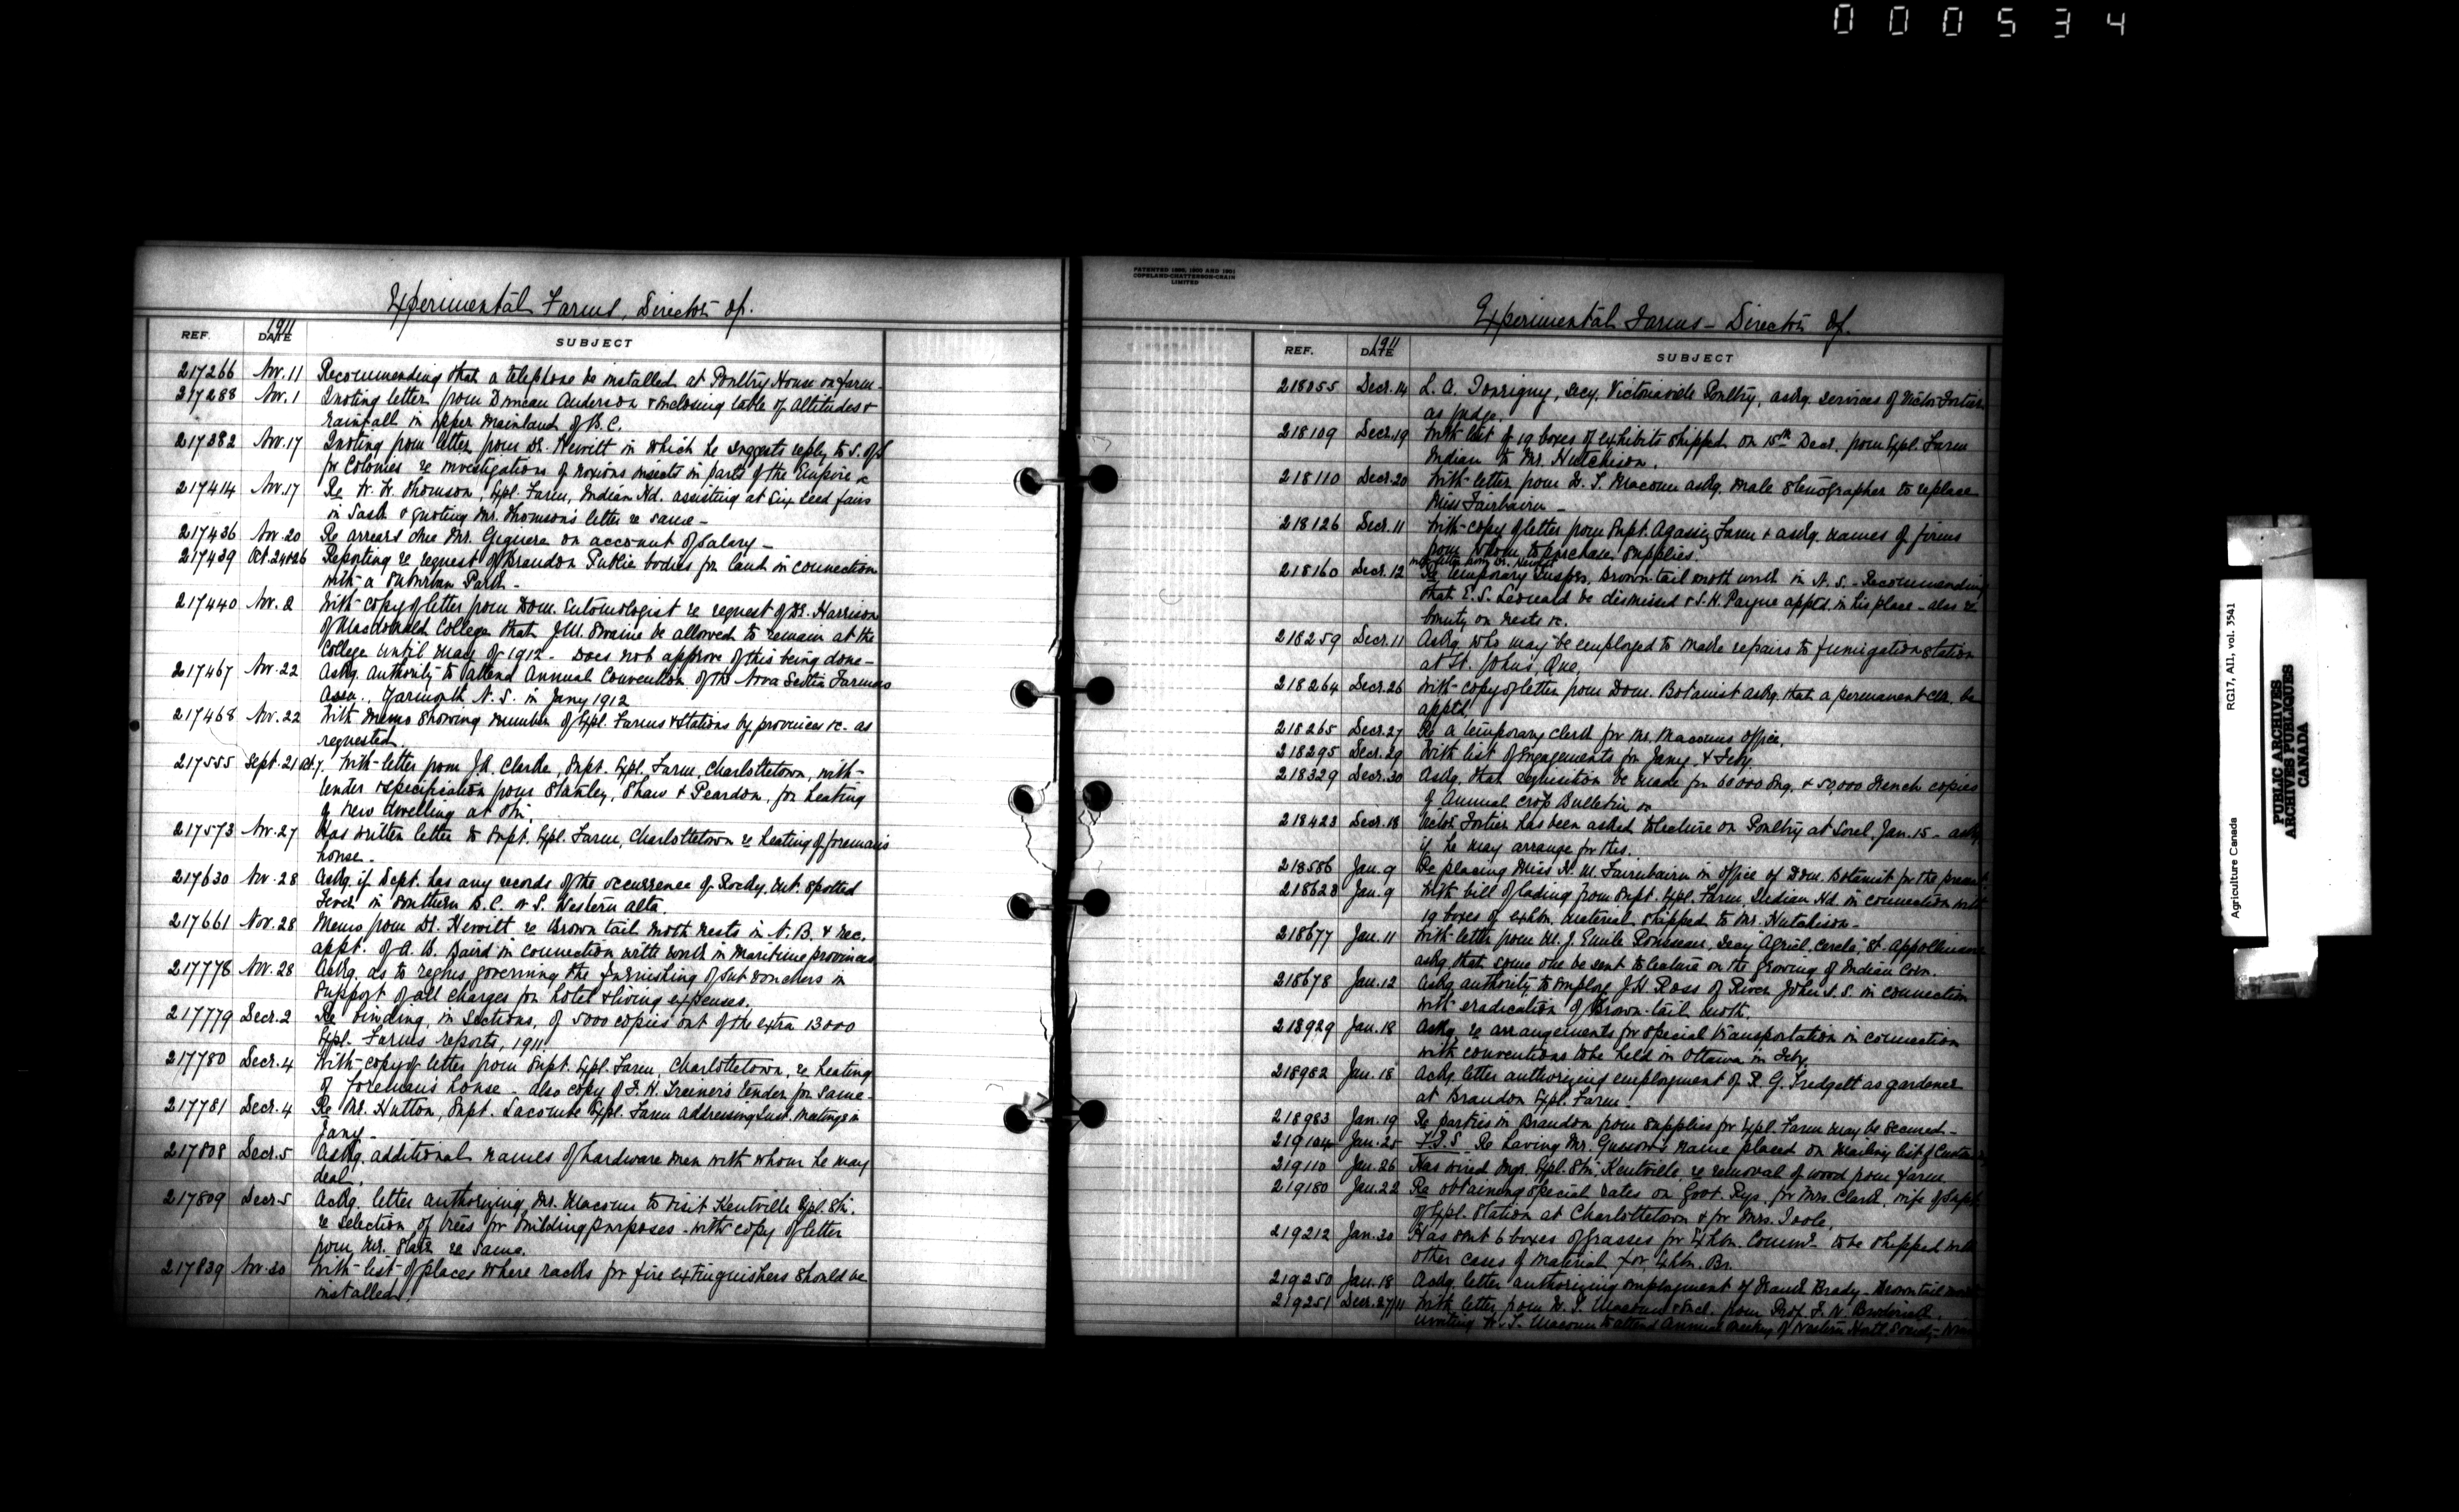 000534
Experimental Farms, Director of.
REF. DATE 1911 SUBJECT
217266 Nov. 11 Recommending that a telephone be installed at Poultry House on Farm-
217288 Nov. 1 Quoting letter from Duncan Anderson & enclosing table of altitudes &
rainfall in upper mainland of B.C.
217382 Nov. 17 Quoting from letter from Dr. Hewitt in which he suggests reply to S. of S
for Colonies re investigations of noxious insects in parts of the Empire &c
217414 Nov. 17 Re W. H. Thomson, Expl. Farm, Indian Hd. assisting at six seed fairs
in Sask. & quoting Mr. Thomson's letter re same -
217436 Nov. 20 Re arrears due Mr. Giguere on account of salary -
217439 Oct. 24 & 26 Reporting re request of Brandon Public bodies for land in connection
with a suburban Park -
217440 Nov. 2 With copy of letter from Dom. Entomologist re request of Dr. Harrison
of Macdonald College that J.M. Swaine be allowed to remain at the
College until May of 1912 - Does not approve of this being done -
217467 Nov. 22 Askg. authority to attend Annual Convention of the Nova Scotia Farmers
Assn., Yarmouth N.S. in Jany 1912
217468 Nov. 22 With memo showing number of Expl. Farms & Stations by provinces &c. as
requested.
217555 Sept. 21 Oct 7. With letter from J.A. Clarke, Supt. Expl. Farm, Charlottetown, with
tender & specification from Stanley, Shaw & Peardon, for heating
of new dwelling at Stn.
217573 Nov. 27 Has written letter to Supt. Expl. Farm, Charlottetown re heating of foreman's
house -
217630 Nov. 28 Askg. if Dept. has any records of the occurrence of Rocky Mt. spotted
Fever in Southern B.C. or S. Western Alta.
217661 Nov. 28 Memo from Dr. Hewitt re Brown tail moth nests in N.B. & rec.
appt. of A. B. Baird in connection with work in Maritime provinces
217778 Nov. 28 Askg. as to regns governing the furnishing of sub vouchers in
support of all charges for hotel & living expenses.
217779 Decr. 2 Re binding, in sections, of 5000 copies out of the extra 13000
Expl. Farms reports, 1911
217780 Decr. 4 With copy of letter from Supt. Expl. Farm, Charlottetown, re heating
of foreman's house - also copy of F.H. tender for same -
217781 Decr. 4 Re Mr. Hutton, Supt. Lacombe Expl. Farm addressing Inst. meetings in
Jany -
217808 Decr. 5 Askg. additional names of hardware men with whom he may
deal.
217809 Decr. 5 Ackg. letter authorizing Mr. Macoun to visit Kentville Expl. Stn.
re selection of trees for building purposes - with copy of letter
from Mr. Starr re same.
217839 Nov. 30 With list of places where racks for fire extinguishers should be
installed.
PATENTED 1898, 1900 AND 1901
COPELAND-CHATTERSON-CRAIN
LIMITED
Experimental Farms - Director of.
REF. DATE 1911 SUBJECT
218055 Decr. 14 L. A. Secy. Victoriaville Poultry, askg. services of Victor Fortier
as judge.
218109 Decr. 19 With list of 19 boxes of exhibits shipped on 15th Decr. from Expl. Farm
Indian to Mr. Hutchison.
218110 Decr. 20 With letter from W. T. Macoun askg. male stenographer to replace
Miss Fairbairn -
218126 Decr. 11 With copy of letter from Supt. Agassiz Farm & askg. names of firms
from whom to purchase supplies.
218160 Decr. 12 with letter from Dr. Hewitt
Re temporary Inspcr. brown-tail moth work in N.S. - Recommending
that E.S. Leonard be dismissed & S.K. Payne apptd in his place - also re
bounty on nests &c.
218259 Decr. 11 Askg. who may be employed to make repairs to fumigation station
at St. Johns, Que,
218264 Decr. 26 With copy of letter from Dom. Botanist askg. that a permanent clk. be
apptd.
218265 Decr. 27 Re a temporary clerk for Mr. Macoun's office.
218295 Decr. 29 With list of engagements for Jany. & Feby.
218329 Decr. 30 Askg. that requisition be made for 60000 Eng. & 50,000 French copies
of Annual crop Bulletin &c
218423 Decr. 18 Victor Fortier has been asked to lecture on Poultry at Sorel, Jan. 15 - askg
if he may arrange for this.
218586 Jan. 9 Re placing Miss H. M. Fairbairn in office of Dom. Botanist for the present
218628 Jan. 9 With bill of lading from Supt. Expl. Farm, Indian Hd. in connection with
19 boxes of exhbn. material shipped to Mr. Hutchison -
218677 Jan. 11 With letter from M. J. Emile Rousseau, Secy "Agricl. Circle," St. Appollinaire
askg. that some one be sent to lecture on the growing of Indian Corn.
218678 Jan. 12 Askg. authority to employ J.H. Ross of River John N.S. in connection
with eradication of Brown-tail moth.
218929 Jan. 18 Askg. re arrangements for special transportation in connection
with conventions to be held in Ottawa in Feby.
218982 Jan. 18 Ackg. letter authorizing employment of R. G. Tredgett as gardener
at Brandon Expl. Farm -
218983 Jan. 19 Re parties in Brandon from supplies for Expl. Farm may be secured -
219104 Jan. 25 Re having Mr. Gussow's name placed on mailing list of
219110 Jan. 26 Has wired Mgr. Expl. Stn. Kentville re removal of wood from Farm
219180 Jan. 22 Re obtaining special rates on Govt. Rys. for Mrs. Clark, wife of Supt
of Expl. Station at Charlottetown & for Mrs. Toole.
219212 Jan. 30 Has sent 6 boxes of grasses for Exhbn. Commr. to be shipped with
other cases of material for Exhbn. Br.
219250 Jan. 18 Ackg. letter authorizing employment of Frank Brady - Brown tail moth
219251 Decr. 27/11 With letter from W. T. Macoun & encl. from Prof. F. W. Broderick
inviting W. T. Macoun to attend Annual meeting of Western Hortl. Society
Agriculture Canada RG17, A11, vol. 3541
PUBLIC ARCHIVES
ARCHIVES PUBLIQUES
CANADA